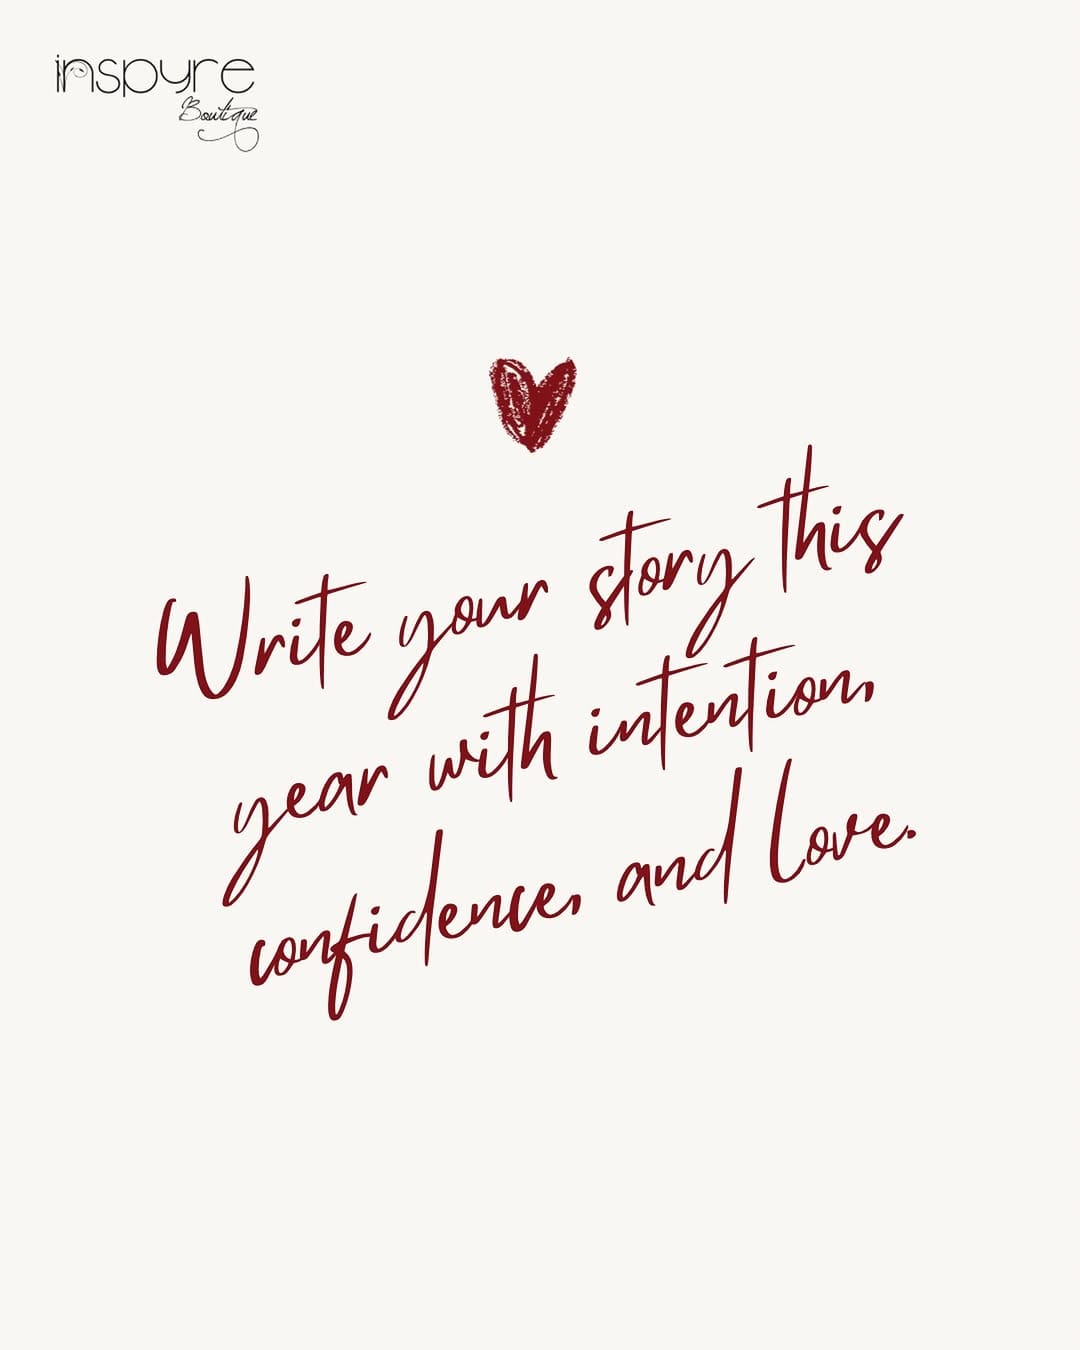 inspyre
Boutique
Write your story this
year with intention,
confidence, and love.